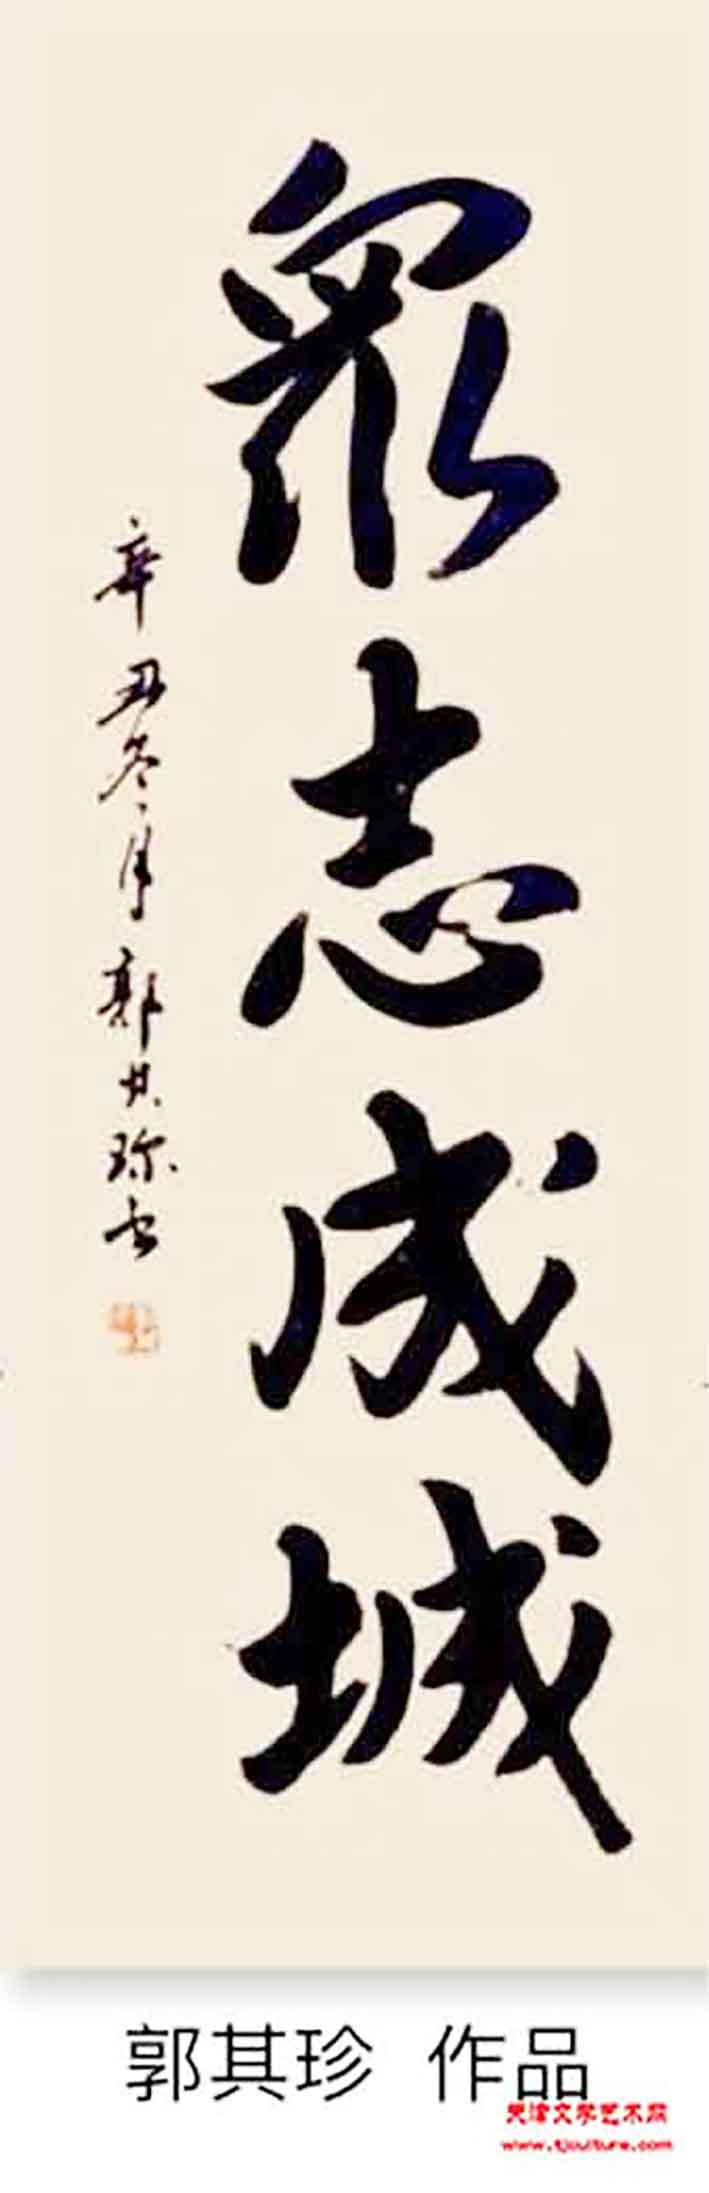 眾志成城
辛丑冬月郭其珍书
郭其珍 作品
天津文学艺术网
www.tjculture.com